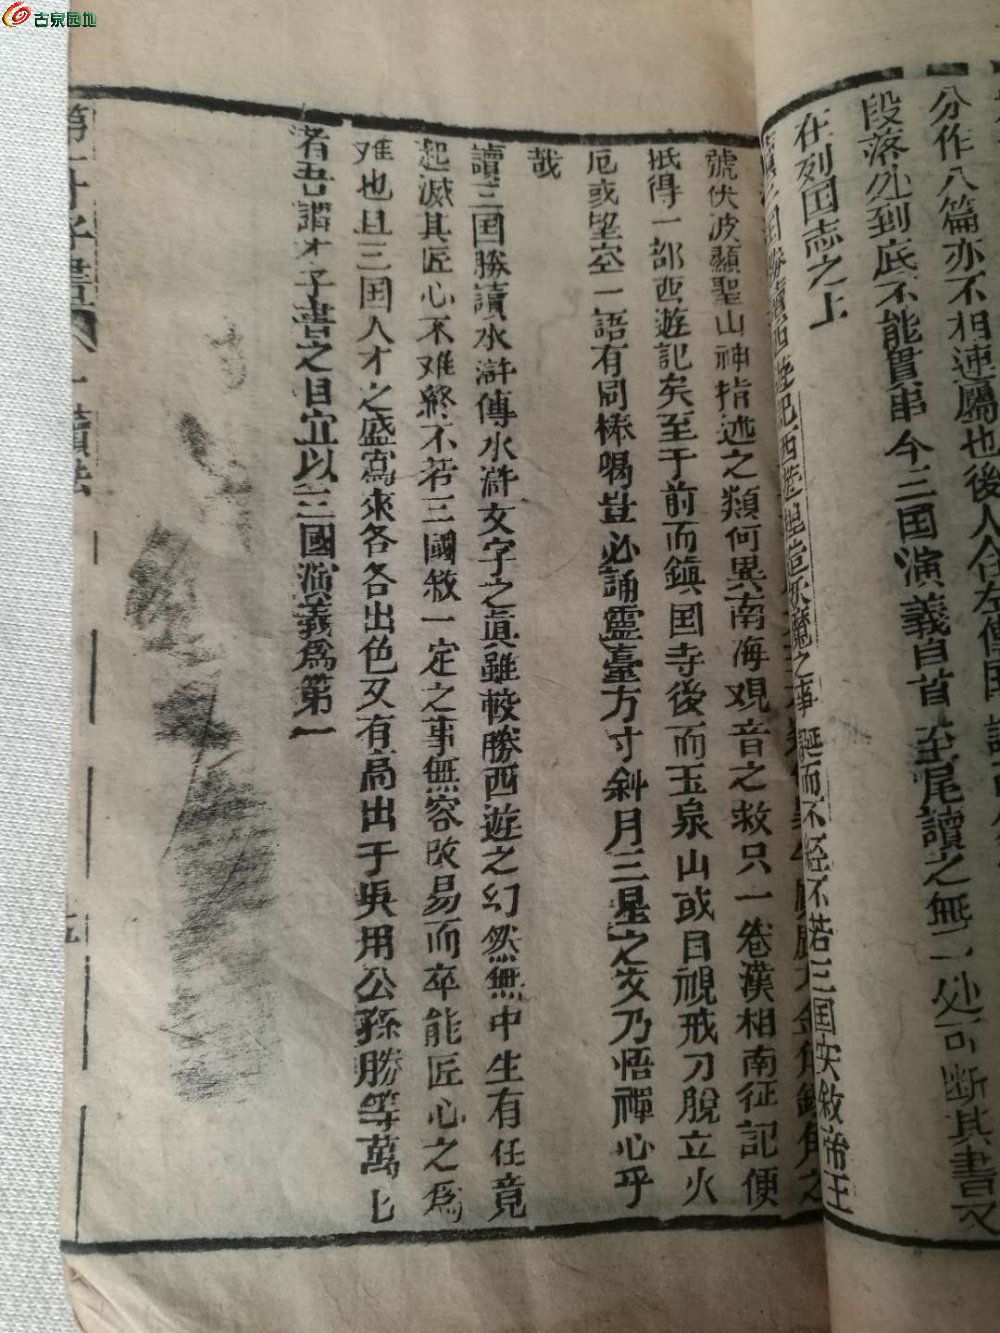 古泉园地
分作八篇亦不相連屬也後人合左傳国語
段落处到底不能貫串今三国演義自首至尾讀之無一处可断其書又
在列国志之上
西遊捏造妖魔之事誕而不經不若三国实敘帝王
金角銀角之
號伏波顯聖山神指迷之類何異南海观音之救只一卷漢相南征記便
抵得一部西遊記矣至于前而鎮国寺後而玉泉山或目視戒刀脫立火
厄或望空一語有同棒喝豈必誦靈臺方寸斜月三星之文乃悟禪心乎
哉
讀三国勝讀水滸傳水滸文字之真雖較勝西遊之幻然無中生有任竟
起滅其匠心不难終不若三國敘一定之事無容改易而卒能匠心之為
难也且三国人才之盛寫來各各出色又有高出于吳用公孫勝等萬七
者吾謂才子書之目宜以三國演義為第一
第一才子書 讀法 五